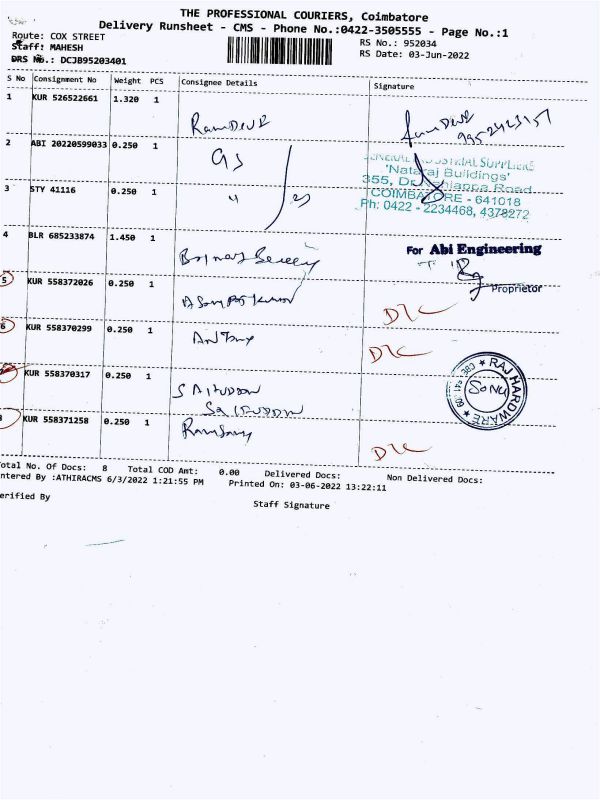 THE PROFESSIONAL COURIERS, Coimbatore
Delivery Runsheet - CMS - Phone No.:0422-3505555 - Page No.:1
Route: COX STREET
RS No.: 952034
Staff: MAHESH
RS Date: 03-Jun-2022
DRS No.: DCJB95203401
S No Consignment No Weight PCS Consignee Details Signature
1 KUR 526522661 1.320 1
RamDevR
2 ABI 20220599033 0.250 1 GS
GENERAL INDUSTRIAL SUPPLIERS
'Nataraj Buildings'
3 STY 41116 0.250 1 "
355, Dr. Nanjappa Road
COIMBATORE - 641018
Ph: 0422 - 2234468, 4378272
4 BLR 685233874 1.450 1
For Abi Engineering
Proprietor
5 KUR 558372026 0.250 1
6 KUR 558370299 0.250 1 Antony
KUR 558370317 0.250 1
RAJ HARDWARE
SONU
8 KUR 558371258 0.250 1 Ramsamy
Total No. Of Docs: 8 Total COD Amt: 0.00 Delivered Docs: Non Delivered Docs:
ntered By :ATHIRACMS 6/3/2022 1:21:55 PM Printed On: 03-06-2022 13:22:11
erified By
Staff Signature